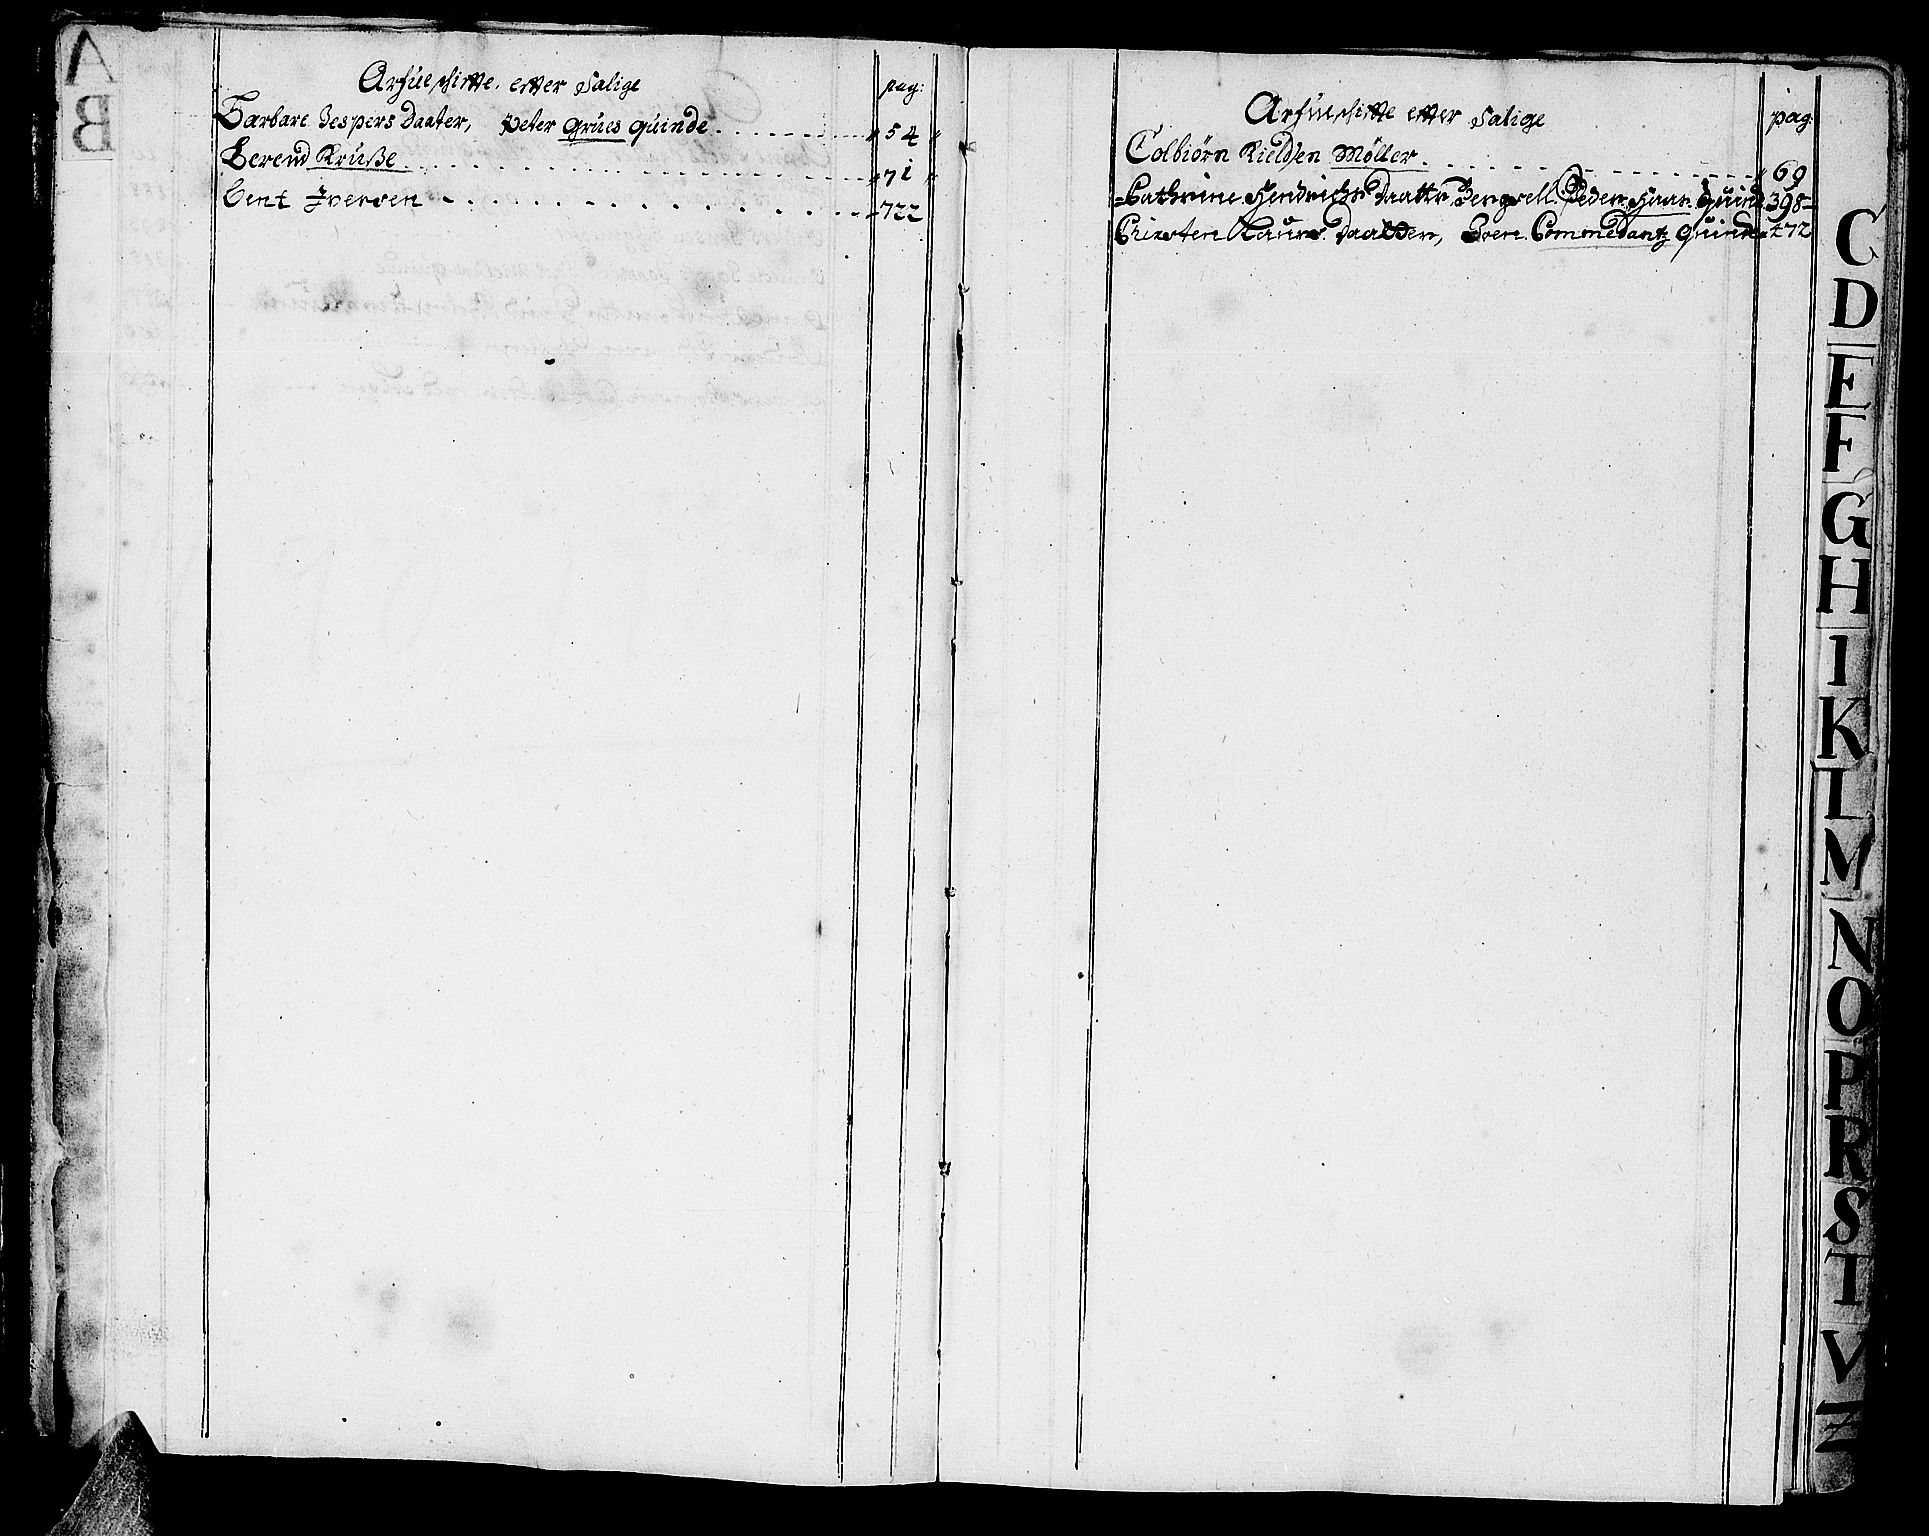 A
B
Arfueschifte efter Salige
pag:
Barbare Jespers Daater, Peter Grues quinde 54
Berend Kruße 71
Bent Iversen 722
Arfueschifte efter Salige
pag:
Colbiørn Kieldsen Møller 69
Cathrine Hendrichs Daatter Peder Haar quinde 398
Chirsten Laurs Daatter, Commedantz quinde 472
C
D
E
F
G
H
I
K
L
M
N
O
P
R
S
T
V
Z